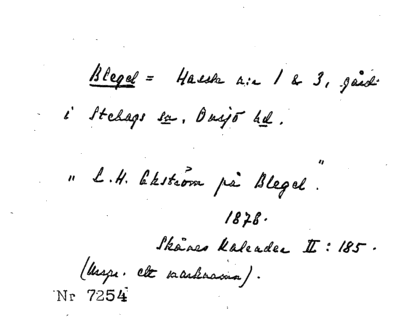 Blegel = Hassle n:r 1 & 3, gård
i Stehags sn, Onsjö hd.
"L.H. Ekström på Blegel."
1878.
Skånes Kalender II : 185.
(Urspr. ett marknamn).
Nr 7254